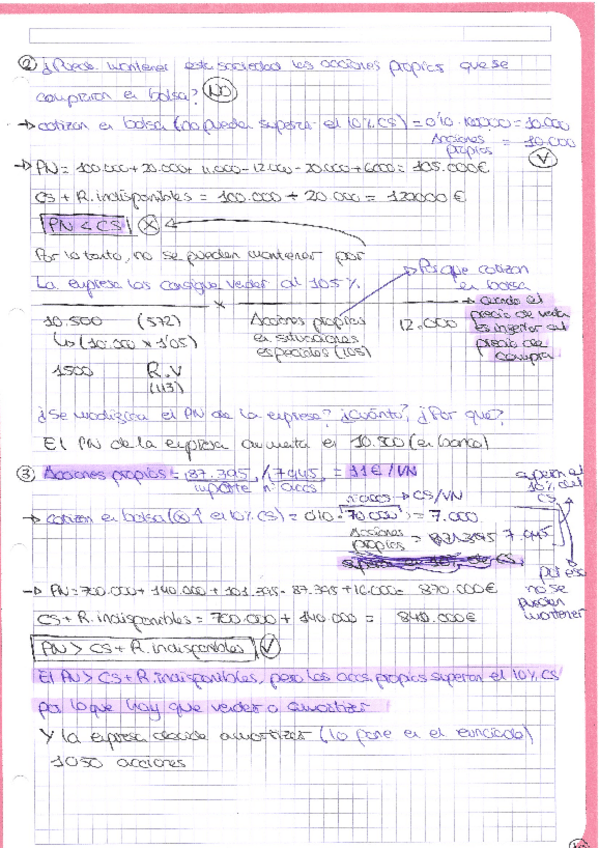 ② ¿Puede mantener esta sociedad las acciones propias que se
compraron en bolsa? NO
→ cotizan en bolsa (no pueden superar el 10% CS) = 0'10 · 100.000 = 10.000
Acciones propias = 10.000
→ PN = 100.000 + 20.000 + 11.000 - 12.000 - 20.000 + 6.000 = 105.000€
CS + R. indisponibles = 100.000 + 20.000 = 120000 €
PN < CS
Por lo tanto, no se pueden mantener por
La empresa las consigue vender al 105%.
→ Porque cotizan en bolsa
x
10.500 (572)
↳ (10.000 x 1'05)
1500 R.V (113)
Acciones propias en situaciones especiales (105)
12.000
→ cuando el precio de venta es inferior al precio de compra
¿Se modifica el PN de la empresa? ¿cuánto? ¿Por qué?
El PN de la empresa aumenta en 10.500 (en banco)
③ Acciones propias = 87.395 / 7.945 = 11€/VN
importe nº accs
nº accs → CS/VN
→ cotizan en bolsa = 0'10 · 70.000 = 7.000
Acciones propias = 7.945
superan el 10% del CS
por eso no se pueden mantener
→ PN = 700.000 + 140.000 + 101.395 - 87.395 + 16.000 = 870.000€
CS + R. indisponibles = 700.000 + 140.000 = 840.000€
PN > CS + R. indisponibles
El PN > CS + R. indisponibles, pero las accs. propias superan el 10% CS
por lo que hay que vender o amortizar
Y la empresa decide amortizar (lo pone en el enunciado)
1050 acciones